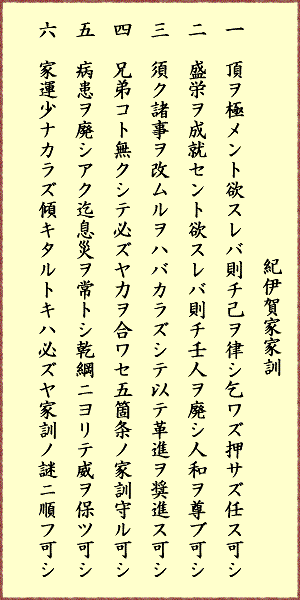 紀伊賀家家訓
一　頂ヲ極メント欲スレバ則チ己ヲ律シ乞ワズ押サズ任ス可シ
二　盛栄ヲ成就セント欲スレバ則チ壬人ヲ廃シ人和ヲ尊ブ可シ
三　須ク諸事ヲ改ムルヲハバカラズシテ以テ革進ヲ奨進ス可シ
四　兄弟コト無クシテ必ズヤ力ヲ合ワセ五箇条ノ家訓守ル可シ
五　病患ヲ廃シアク迄息災ヲ常トシ乾綱ニヨリテ威ヲ保ツ可シ
六　家運少ナカラズ傾キタルトキハ必ズヤ家訓ノ謎ニ順フ可シ